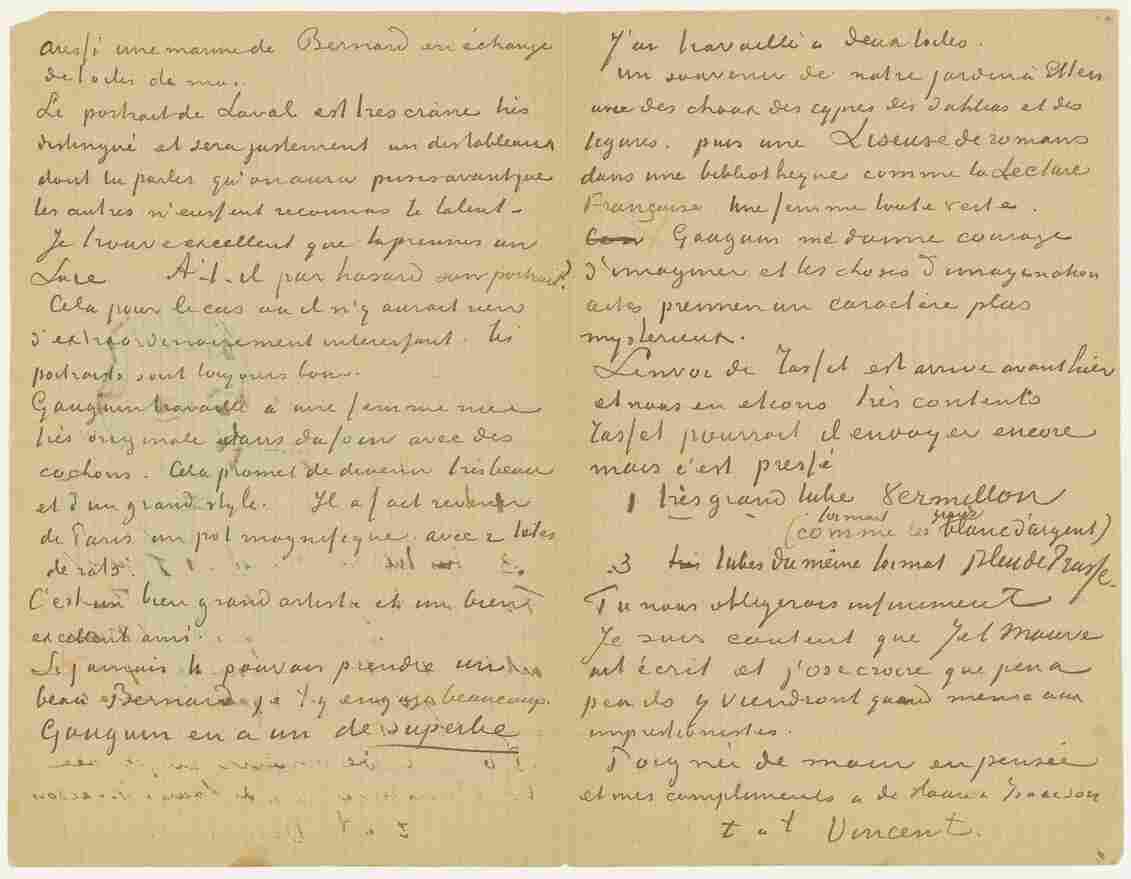 aussi une marine de Bernard en échange
de toiles de moi.
Le portrait de Laval est très crâne très
distingué et sera justement un des tableaux
dont tu parles qu'on aura prises avant que
les autres n'eussent reconnu le talent.
Je trouve excellent que tu prennes un
Luce A-t-il par hasard son portrait?
Cela pour le cas où il n'y aurait rien
d'extraordinairement interessant. les
portraits sont toujours bons.
Gauguin travaille à une femme nue
très originale dans du foin avec des
cochons. Cela promet de devenir très beau
et d'un grand style. Il a fait revenir
de Paris un pot magnifique avec 2 têtes
de rats.
C'est un bien grand artiste et un bien
excellent ami.
Si jamais tu pouvais prendre un
beau Bernard je t'y engage beaucoup.
Gauguin en a un de superbe
J'ai travaillé à deux toiles.
un souvenir de notre jardin à Etten
avec des choux des cyprès des dahlias et des
figures. puis une Liseuse de romans
dans une bibliothèque comme la Lecture
Française Une femme toute verte.
Gauguin me donne courage
d'imaginer et les choses d'imagination
certes prennent un caractère plus
mysterieux.
L'envoi de Tasset est arrivé avant hier
et nous en etions très contents
Tasset pourrait il envoyer encore
mais c'est pressé
1 très grand tube Vermillon
format gros
(comme les blanc d'argent)
3 tubes du même format bleu de Prusse.
Tu nous obligerais infiniment
Je suis content que Jet Mauve
ait écrit et j'ose croire que peu a
peu ils y viendront quand meme aux
impressionistes.
Poignée de main en pensée
et mes compliments a de Haan & Isaacson
t. à t. Vincent.